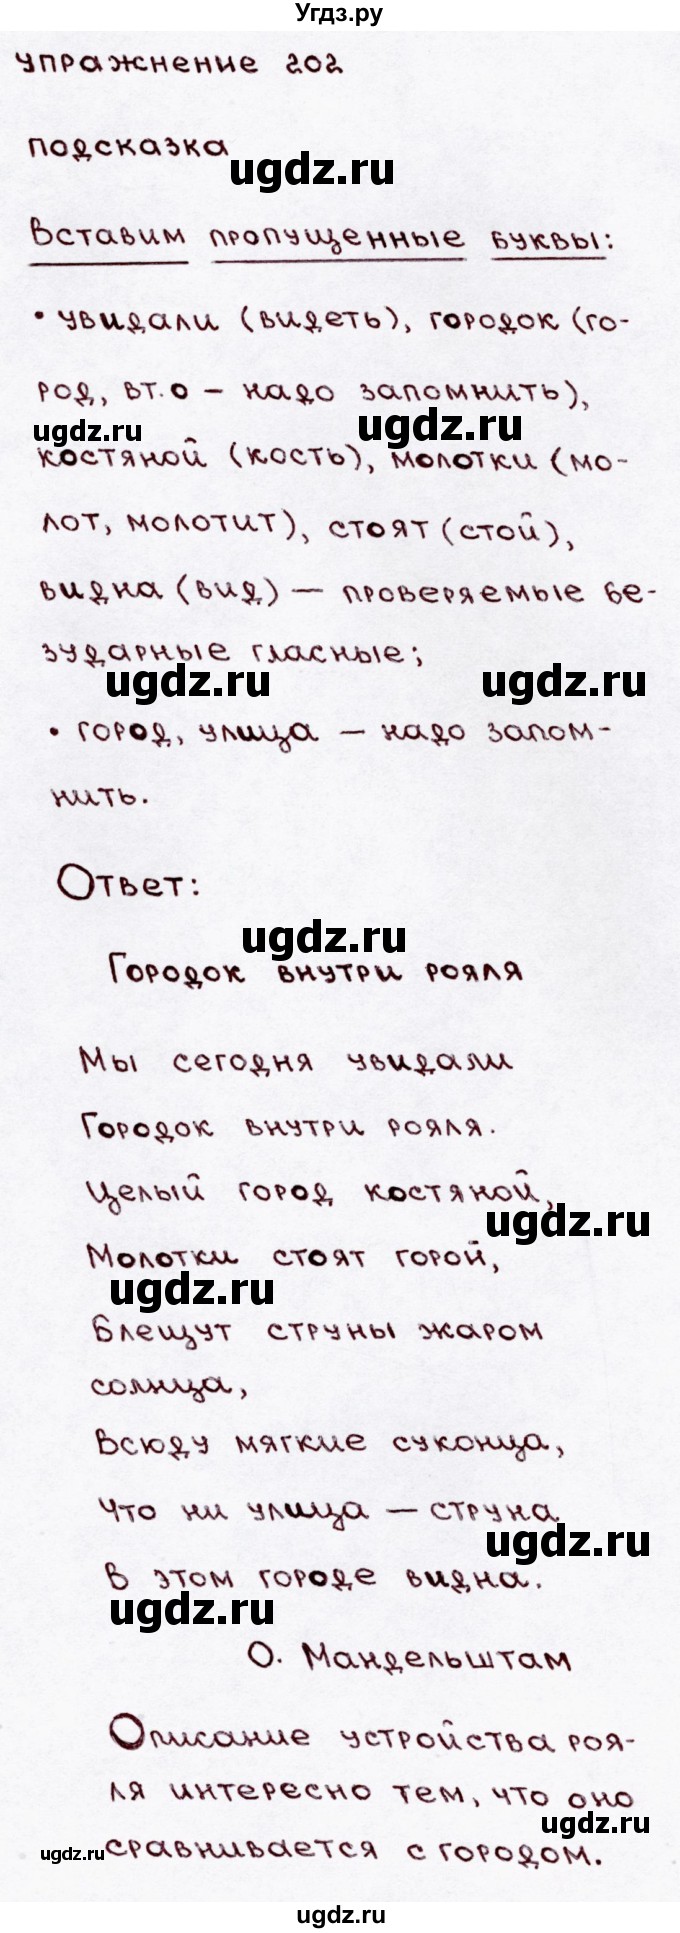 Угдз.ру
упражнение 202
подсказка
ugdz.ru
Вставим пропущенные буквы:
• увидали (видеть), городок (го-
род, вт. о – надо запомнить),
ugdz.ru ugdz.ru
костяной (кость), молотки (мо-
лот, молотит), стоят (стой),
видна (вид) – проверяемые бе-
зударные гласные;
ugdz.ru ugdz.ru
• город, улица – надо запом-
нить.
Ответ:
ugdz.ru
Городок внутри рояля
Мы сегодня увидали
Городок внутри рояля.
Целый город костяной,
ugdz.ru
Молотки стоят горой,
ugdz.ru
Блещут струны жаром
солнца,
Всюду мягкие суконца,
Что ни улица – струна
ugdz.ru
В этом городе видна.
ugdz.ru
О. Мандельштам
Описание устройства роя-
ля интересно тем, что оно
ugdz.ru
ugdz.ru сравнивается с городом.
ugdz.ru